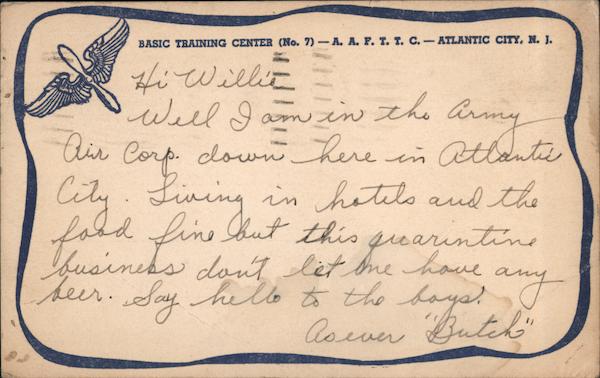 BASIC TRAINING CENTER (No. 7) — A. A. F. T. T. C. — ATLANTIC CITY, N. J.
Hi Willie
Well I am in the Army
Air Corp. down here in Atlantic
City. Living in hotels and the
food fine but this quarintine
business don't let me have any
beer. Say hello to the boys.
As ever "Butch"